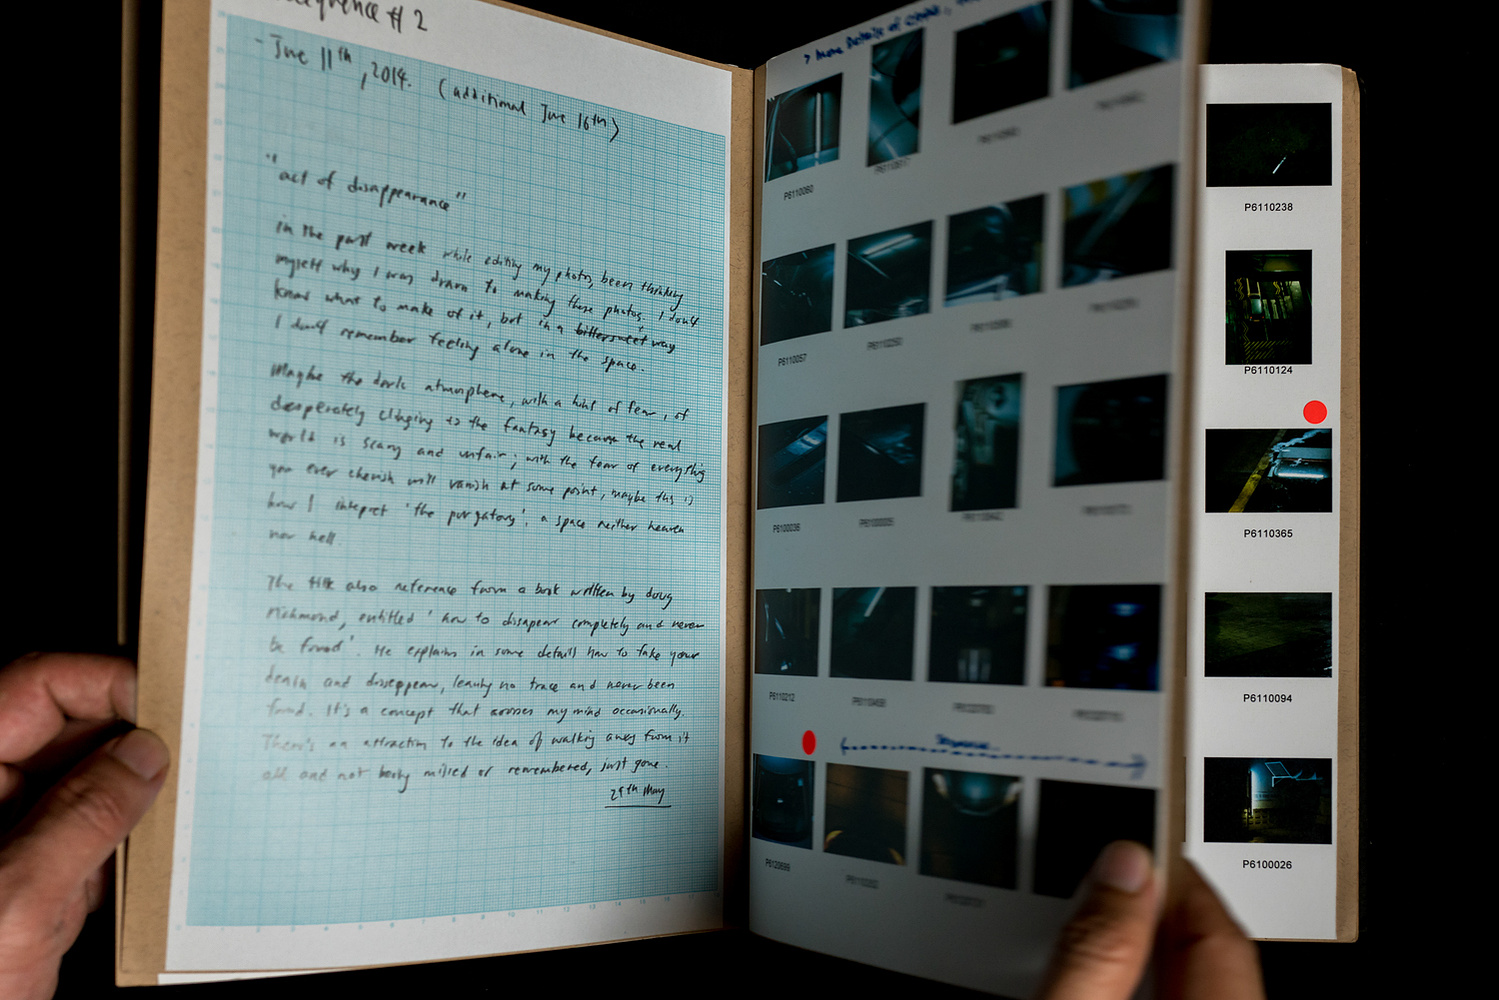 sequence # 2
- June 11th, 2014. (additional June 16th)
"act of disappearance"
in the past week while editing my photos, been thinking
myself why I was drawn to making these photos, I don't
know what to make of it, but in a bittersweet way
I don't remember feeling alone in the space.
Maybe the dark atmosphere, with a hint of fear, of
desperately clinging to the fantasy because the real
world is scary and unfair; with the fear of everything
you ever cherish will vanish at some point, maybe this is
how I intepret 'the purgatory'. a space neither heaven
nor hell.
The title also reference from a book written by doug
richmond, entitled 'how to disapear completely and never
be found'. He explains in some details how to fake your
death and dissappear, leaving no trace and never been
found. It's a concept that crosses my mind occasionally.
There's an attraction to the idea of walking away from it
all and not being missed or remembered, just gone.
29th May
> more Details of
P6110060
P6110057
P6110250
P6100036
P6100005
P6110212
P6120699
P6110238
P6110124
P6110365
P6110094
P6100026